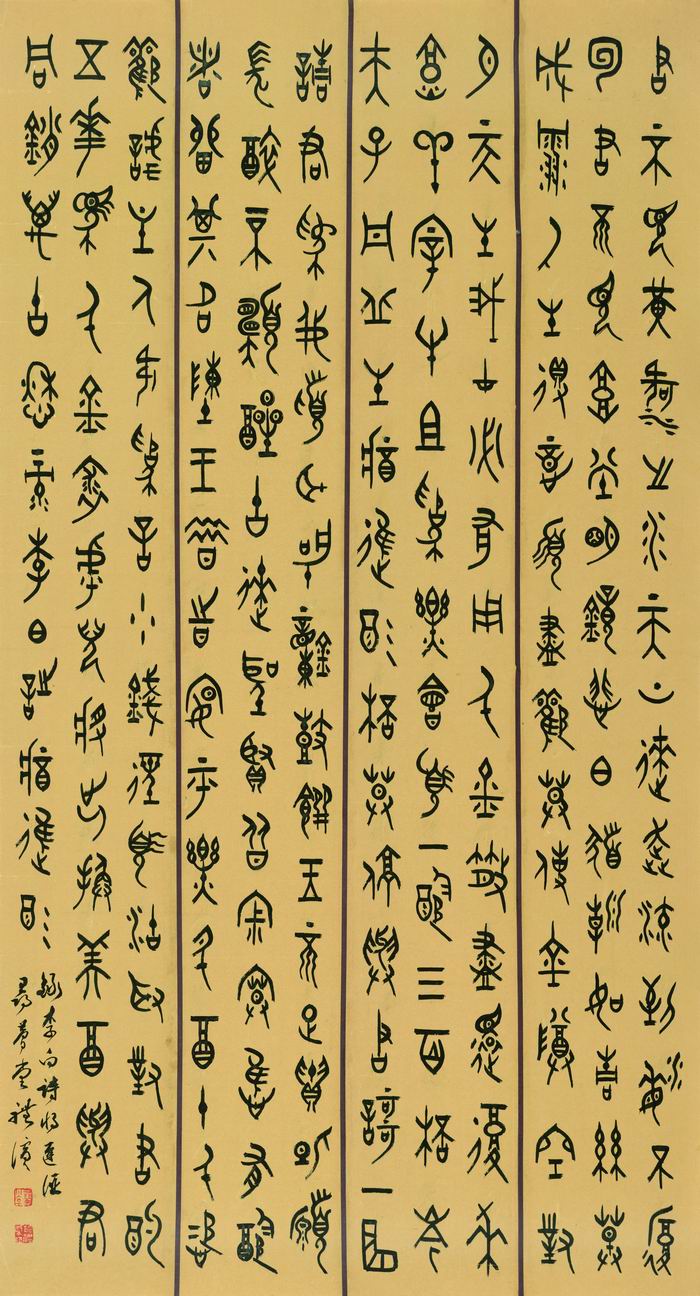 君不見黃河之水天上來奔流到海不復
回君不見高堂明鏡悲白髮朝如青絲暮
成雪人生得意須盡歡莫使金樽空對
月天生我材必有用千金散盡還復來
烹羊宰牛且為樂會須一飲三百杯岑
夫子丹丘生將進酒杯莫停與君歌一曲
請君為我傾耳聽鐘鼓饌玉不足貴但願
長醉不願醒古來聖賢皆寂寞惟有飲
者留其名陳王昔時宴平樂斗酒十千恣
歡謔主人何為言少錢徑須沽取對君酌
五花馬千金裘呼兒將出換美酒與君
同銷萬古愁李白詩將進酒
錄李白詩將進酒
尋夢堂濱